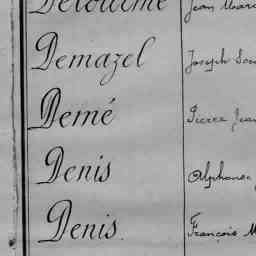 Demazel Joseph
Demé Pierre Jean
Denis Alphonse
Denis. François M